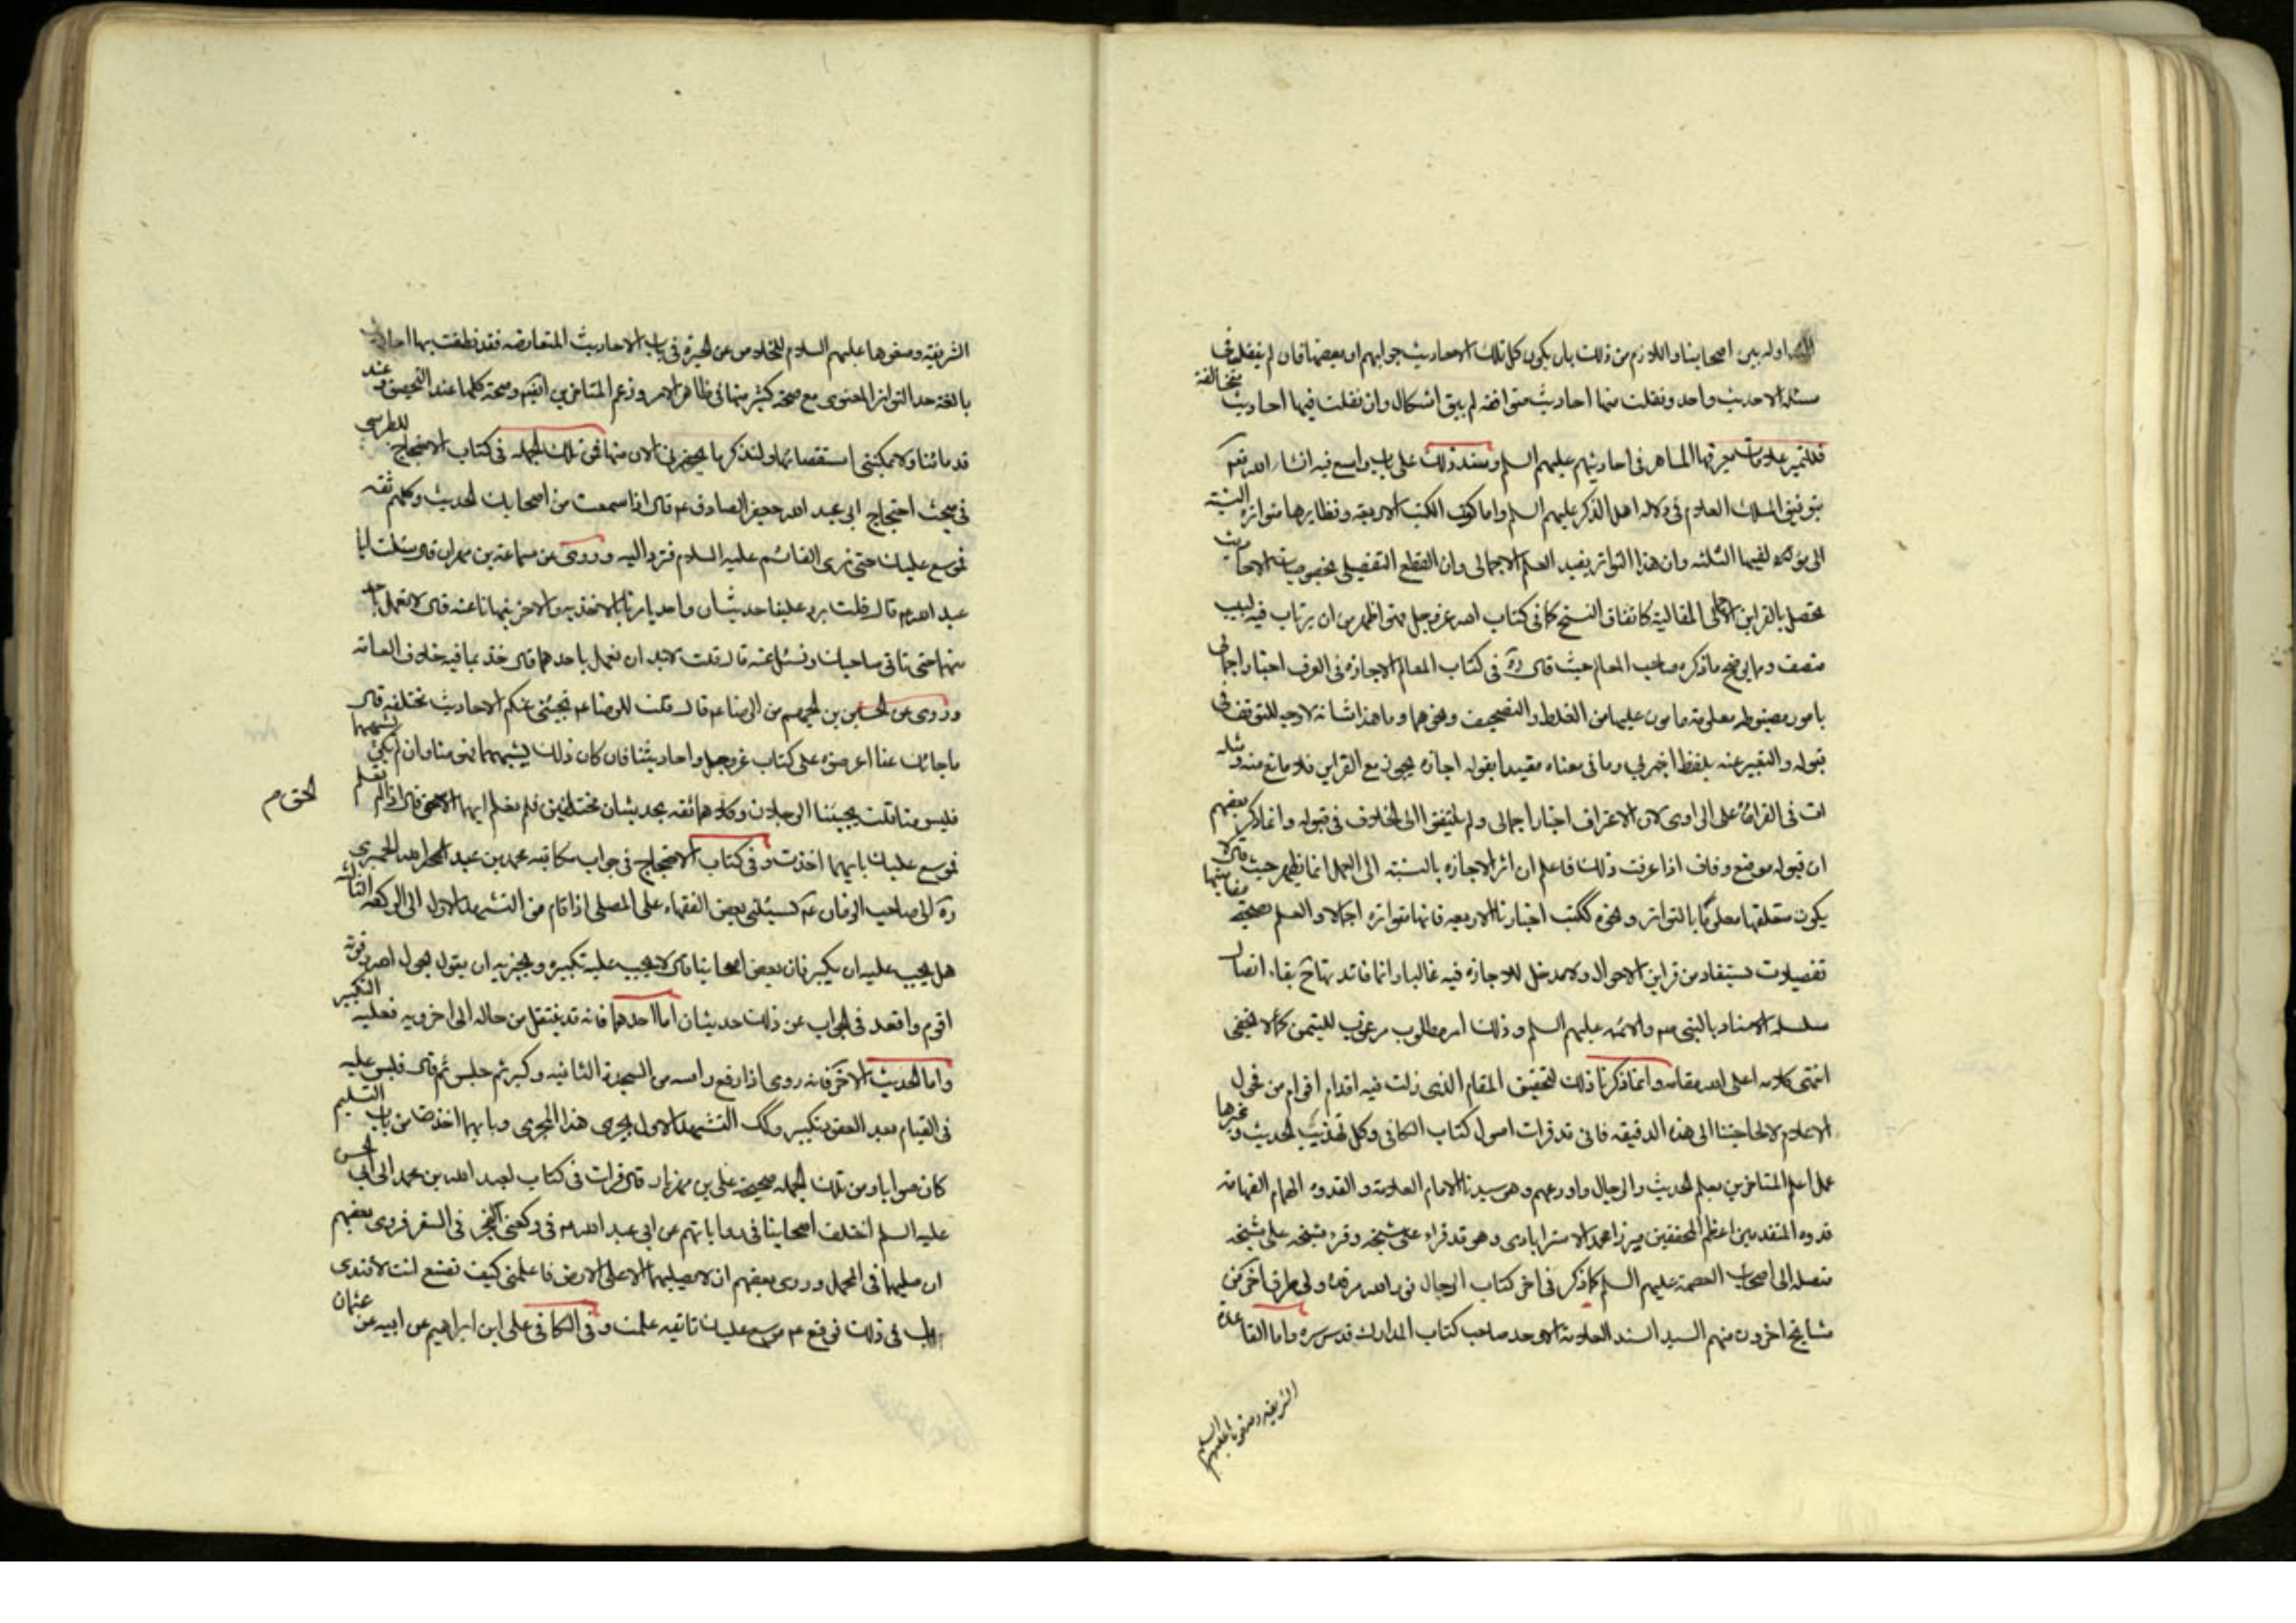 اوله بين اصحابنا واللازم من ذلك بان يكون كل تلك الاحاديث جوابهم او بعضها فان لم ينقل في
مسئلة الا حديث واحد ونقلت منها احاديث متوافقه لم يبق اشكال وان نقلت فيها احاديث متخالفة
فللتميز علامات يعرفها الماهر في احاديثهم عليهم السلم وسند ذلك على باب واسع فيه انشاء الله تعه
بتوفيق الملك العلام في دلاله اهل الذكر عليهم السلم واما كون الكتب الاربعه ونظايرها متواترة النسبة
الى مؤلفيها الثلثه وان هذا التواتر يفيد العلم الاجمالى وان القطع التفصيلى بخصوصيات الاحاديث
يحصل بالقراين المقالية كاتفاق النسخ كما في كتاب الله عز وجل فهى اظهر من ان يرتاب فيه لبيب
منصف ومما يوضح ما ذكره صاحب المعالم حيث قال ره في كتاب المعالم الاجازه في العرف اخبار اجمالى
بامور مضبوطه معلومة مامون عليها من الغلط والتصحيف ونحوهما وما هذا شانه لا وجه للتوقف في
قبوله والتعبير عنه بلفظ اخبرني وما في معناه مقيدا بقوله اجازة يجوز مع القراين فلا مانع منه ومثله
ات في القراءة على الراوى لان الاعتراف اخبار اجمالى ولم يلتفتوا الى الخلاف في قبوله وانما ذكر بعضهم
ان قبوله موضع وفاق اذا عرفت ذلك فاعلم ان اثر الاجازه بالنسبة الى العمل انما يظهر حيث لا
يكون متعلقها معلوما بالتواتر ونحوه ككتب اخبارنا الاربعه فانها متواتره اجمالا والعلم بصحة مضامينها
تفصيلا يستفاد من قراين الاحوال ولا مدخل للاجازه فيه غالبا وانما فائدتها ح بقاء اتصال
سلسلة الاسناد بالنبي ص والائمه عليهم السلم وذلك امر مطلوب مرغوب لليتمن كما لا يخفى
انتهى كلامه اعلى الله مقامه وانما ذكرنا ذلك لتحقيق المقام الذى زلت فيه اقدام اقوام من فحول
الاعلام لا لحاجتنا الى هذه الدقيقه فانى قد قرات اصول كتاب الكافي وكل تهذيب الحديث وغيرها
على اعلم المتاخرين بعلم الحديث والرجال واورعهم وهو سيدنا الامام العلامة والقدوه الهمام الفهامة
قدوة المتقدمين اعظم المحققين ميرزا محمد الاسترابادى وهو قد قراه على شيخه وقره شيخه على شيخه
متصله الى اصحاب العصمة عليهم السلم كما ذكر في اخر كتاب الرجال نور الله مرقده ولى طرق اخر من
مشايخ اخرون منهم السيد السند العلامة الاوحد صاحب كتاب المدارك قدس سره واما القاعدة
الشريفة وضعوها عليهم السلم
الشريفه وضعوها عليهم السلام للخلاص عن الحيرة في باب الاحاديث المتعارضه فقد نطقت بها احاديث
بالغة حد التواتر المعنوى مع صحة كثير منها في ظاهر الامر وزعم المتاخرين ايضا وصحة كلها عند التحقيق وعند
قدمائنا ولا يمكننى استقصائها ولنذكر ما يحضرنى الان منها فمن تلك الجمله في كتاب الاحتجاج للطبرسي
في مبحث احتجاج ابي عبد الله جعفر الصادق ع قال اذا سمعت من اصحابك الحديث وكلهم ثقه
فموسع عليك حتى ترى القائم عليه السلام فترد اليه وروى عن سماعة بن مهران قال سئلت ابا
عبد الله ع قال قلت يرد علينا حديثان واحد يامرنا بالاخذ به والاخر ينهانا عنه قال لا تعمل بواحد
منهما حتى تاتى صاحبك وتسئل عنه قال قلت لا بد ان نعمل باحدهما قال خذ بما فيه خلاف العامة
وروى عن الحسن بن الجهم عن الرضا ع قال قلت للرضا ع تجيئنى عنكم الاحاديث مختلفه قال
ما جائك عنا اعرضوه على كتاب عز وجل واحاديثنا فان كان ذلك يشبههما فهو منا وان لم يكن يشبههما
فليس منا قلت يجيئنا الرجلان وكلاهما ثقه بحديثان مختلفين فلم نعلم ايهما الحق قال اذا لم تعلم
الحق م
فموسع عليك بايهما اخذت وفي كتاب الاحتجاج في جواب مكاتبه محمد بن عبد الله الحميري
ره الى صاحب الزمان ع يسئلنى بعض الفقهاء على المصلى اذا قام من التشهد الاول الى الركعه الثالثه
هل يجب عليه ان يكبر فان بعض اصحابنا قال لا يجب عليه تكبيره ويجزيه ان يقول بحول الله وقوته
اقوم واقعد في الجواب عن ذلك حديثان اما احدهما فانه قد ينتقل من حاله الى اخرى فعليه التكبير
واما الحديث الاخر فانه روى اذا رفع راسه من السجدة الثانيه وكبر ثم جلس ثم قال فليس عليه
في القيام بعد القعود تكبير وكك التشهد الاول يجرى هذا المجرى وبايهما اخذت من باب التسليم
كان صوابا ومن تلك الجمله صحيحة على بن مهزيار قال قرات في كتاب لعبد الله بن محمد الى ابي الحسن
عليه السلم اختلف اصحابنا في رواياتهم عن ابي عبد الله ع في ركعتى الفجر في السفر فروى بعضهم
ان صليهما في المحمل وروى بعضهم ان لا تصليهما الا على الارض فاعلمنى كيف تصنع انت لاقتدى
بك في ذلك فوقع ع موسع عليك بايه عملت وفي الكافي على ابن ابراهيم عن ابيه عن عثمان